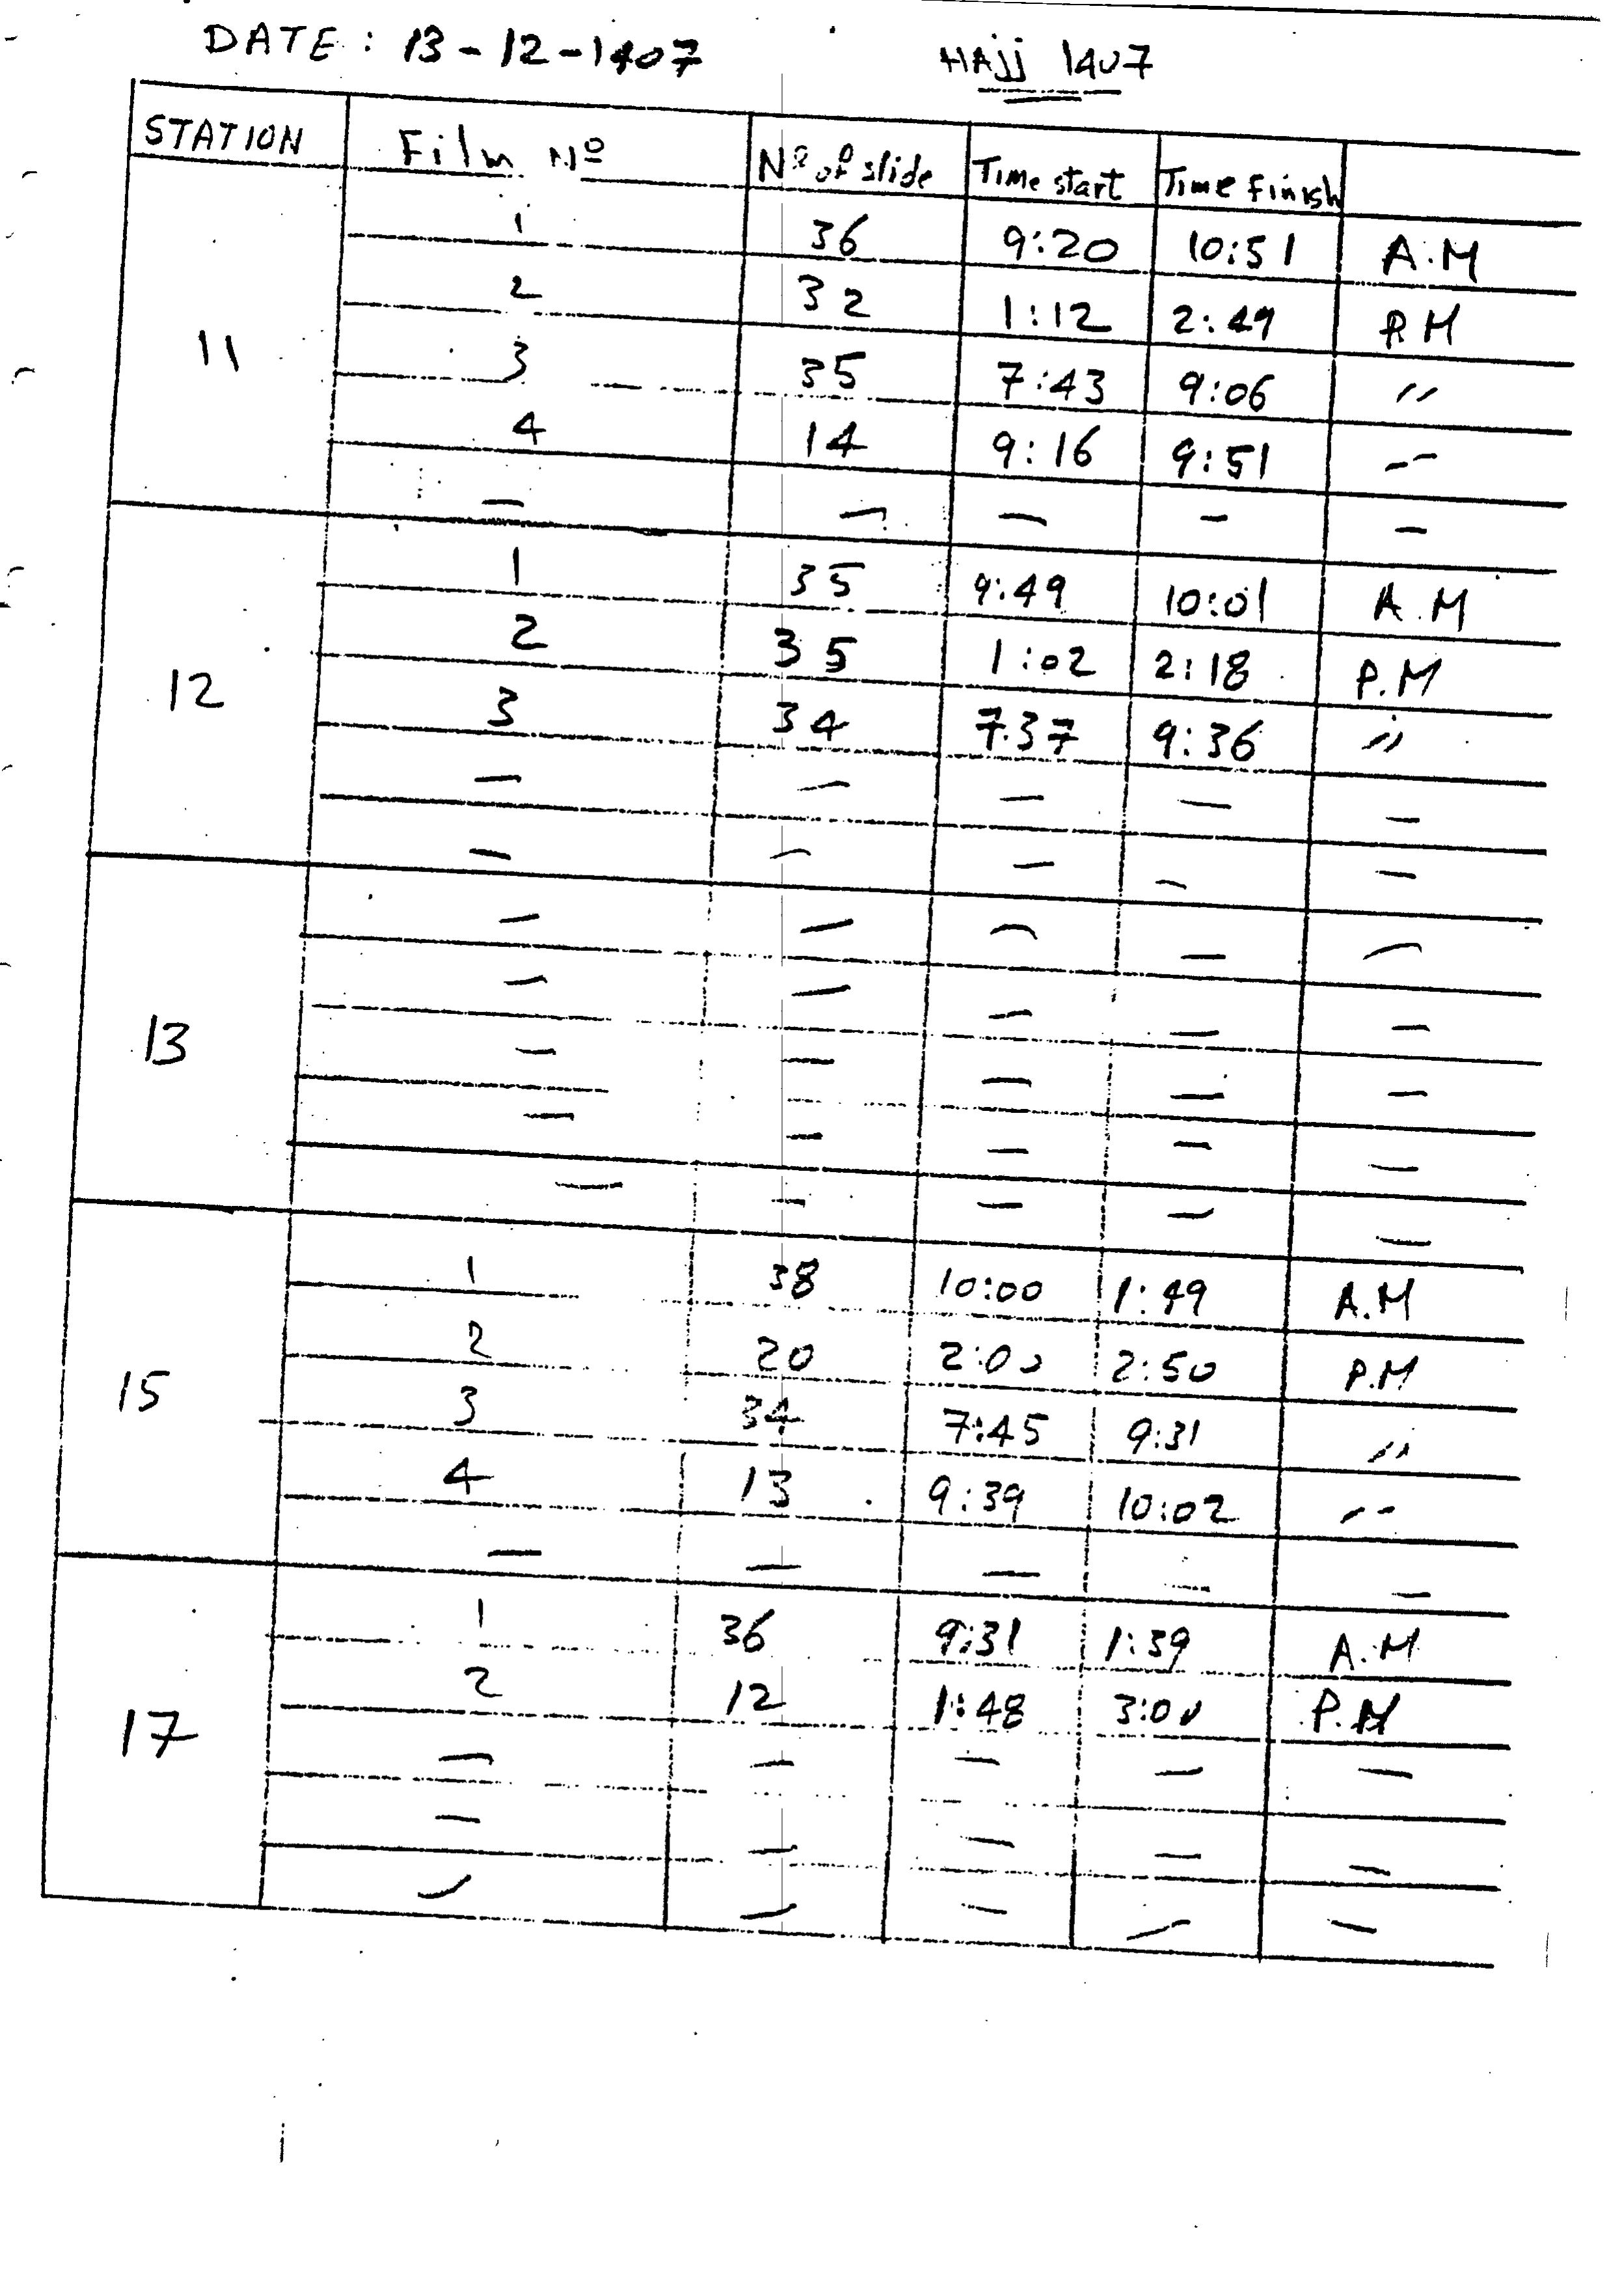 DATE : 13-12-1407 HAjj 1407
STATION Film Nº Nº of slide Time start Time Finish
1 36 9:20 10:51 A.M
2 32 1:12 2:49 P.M
11 3 35 7:43 9:06 "
4 14 9:16 9:51 "
— — — — —
1 35 9:49 10:01 A.M
2 35 1:02 2:18 P.M
12 3 34 7.37 9:36 "
— — — — —
— — — — —
— — — — —
— — — — —
13 — — — — —
— — — — —
— — — — —
1 38 10:00 1:49 A.M
2 20 2:00 2:50 P.M
15 3 34 7:45 9:31 "
4 13 9:39 10:02 "
— — — — —
1 36 9:31 1:39 A.M
2 12 1:48 3:00 P.M
17 — — — — —
— — — — —
— — — — —